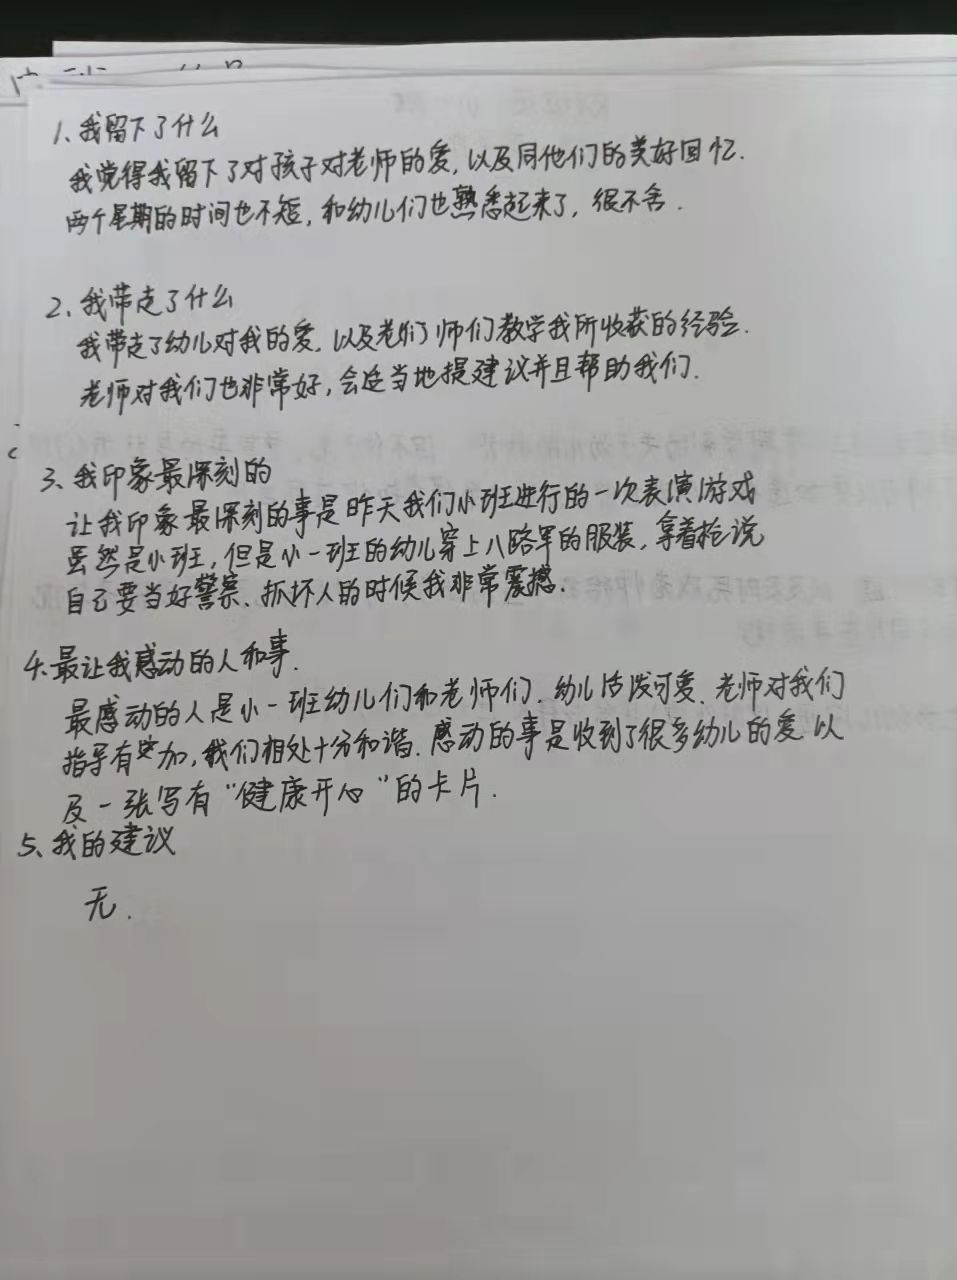 1、我留下了什么
我觉得我留下了对孩子对老师的爱，以及同他们的美好回忆.
两个星期的时间也不短，和幼儿们也熟悉起来了，很不舍.
2、我带走了什么
我带走了幼儿对我的爱，以及老们师们教学我所收获的经验.
老师对我们也非常好，会适当地提建议并且帮助我们.
3、我印象最深刻的
让我印象最深刻的事是昨天我们小班进行的一次表演游戏
虽然是小班，但是小一班的幼儿穿上八路军的服装，拿着枪说
自己要当好警察、抓坏人的时候我非常震撼.
4.最让我感动的人和事.
最感动的人是小一班幼儿们和老师们、幼儿活泼可爱、老师对我们
指导有加，我们相处十分和谐.感动的事是收到了很多幼儿的爱以
及一张写有“健康开心”的卡片.
5、我的建议
无.